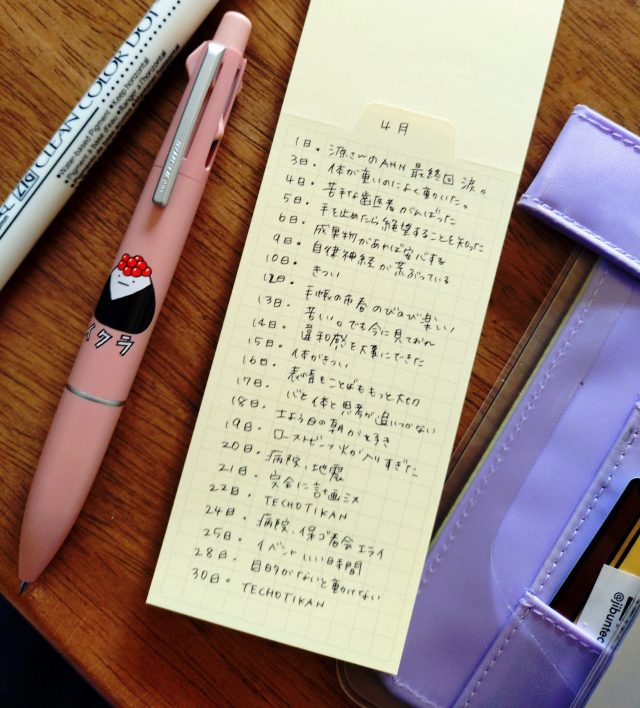 ZIG CLEAN COLOR DOT
•Water-based Pigment •Keep horizontal
イクラ
4月
1日。源さんのANN最終回 涙。
3日。体が重いのによく動いた。
4日。苦手な歯医者がんばった
5日。手を止めたら絶望することを知った
6日。成果物があれば安心する
9日。自律神経が荒ぶっている
10日。きつい
12日。手帳の青春のびのび楽しい!
13日。苦しい。でも今に見ておれ
14日。違和感を大事にできた
15日。体がきつい
16日。表情もことばももっと大切
17日。心と体と思考が追いつかない
18日。土よう日の朝が好き
19日。ローストビーフ火が入りすぎた
20日。病院、地震
21日。完全に計画ミス
22日。TECHOTIKAN
24日。病院、保ゴ者会エライ
25日。イベントいい時間
28日。目的がないと動けない
30日。TECHOTIKAN
@jibuntec